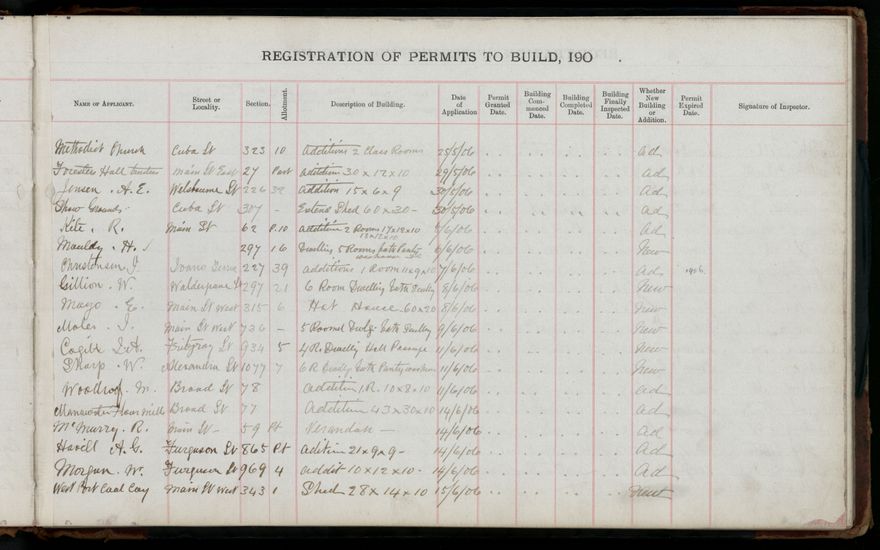 REGISTRATION OF PERMITS TO BUILD, 190 .
Name of Applicant. Street or Locality. Section. Allotment. Description of Building. Date of Application Permit Granted Date. Building Com-menced Date. Building Completed Date. Building Finally Inspected Date. Whether New Building or Addition. Permit Expired Date. Signature of Inspector.
Methodist Church Cuba St 323 10 additions 2 Class Rooms 25/5/06 ad
Foresters Hall Main St East 27 Part addition 30 x 12 x 10 29/5/06 ad
Jensen . A. E. 226 32 addition 15 x 6 x 9 30/5/06 ad
Show Grounds Cuba St 307 - Extend Shed 60 x 30 - 30/5/06 ad
Kite . R. Main St 62 P. 10 addition 2 Rooms 17x12x10 5/6/06 ad
Mauldy . H. 297 16 Dwelling 5 Rooms bath Pantry 6/6/06 New
Christensen J. 227 39 additions 1 Room 11x9x10 7/6/06 ad 1906
Gillion . W. 297 21 6 Room Dwelling bath Scullery 8/6/06 New
Mayo . E. Main St West 315 6 Hot House . 60x20 8/6/06 New
Moles . J. Main St West 736 - 5 Roomed bath Scullery 9/6/06 New
St 934 5 4 R. Dwelling Hall Passage 11/6/06 New
Sharp . W. Alexandra St 1077 7 6 R Dwelg bath Pantry 11/6/06 New
Woodroof . M. Broad St 78 addition 1.R. 10x8x10 11/6/06 ad
Manawatu Flour Mills Broad St 77 Addition 43x30x10 14/6/06 ad
McMurray . R. Main St - 59 Pt Verandah - 14/6/06 ad
Havill A. G. Ferguson St 865 Pt adition 21x9x9 - 14/6/06 ad
Morgan . W. Ferguson St 969 4 addit 10x12x10 - 14/6/06 ad
West Port Coal Coy Main St West 343 1 Shed 28 x 14 x 10 15/6/06 New